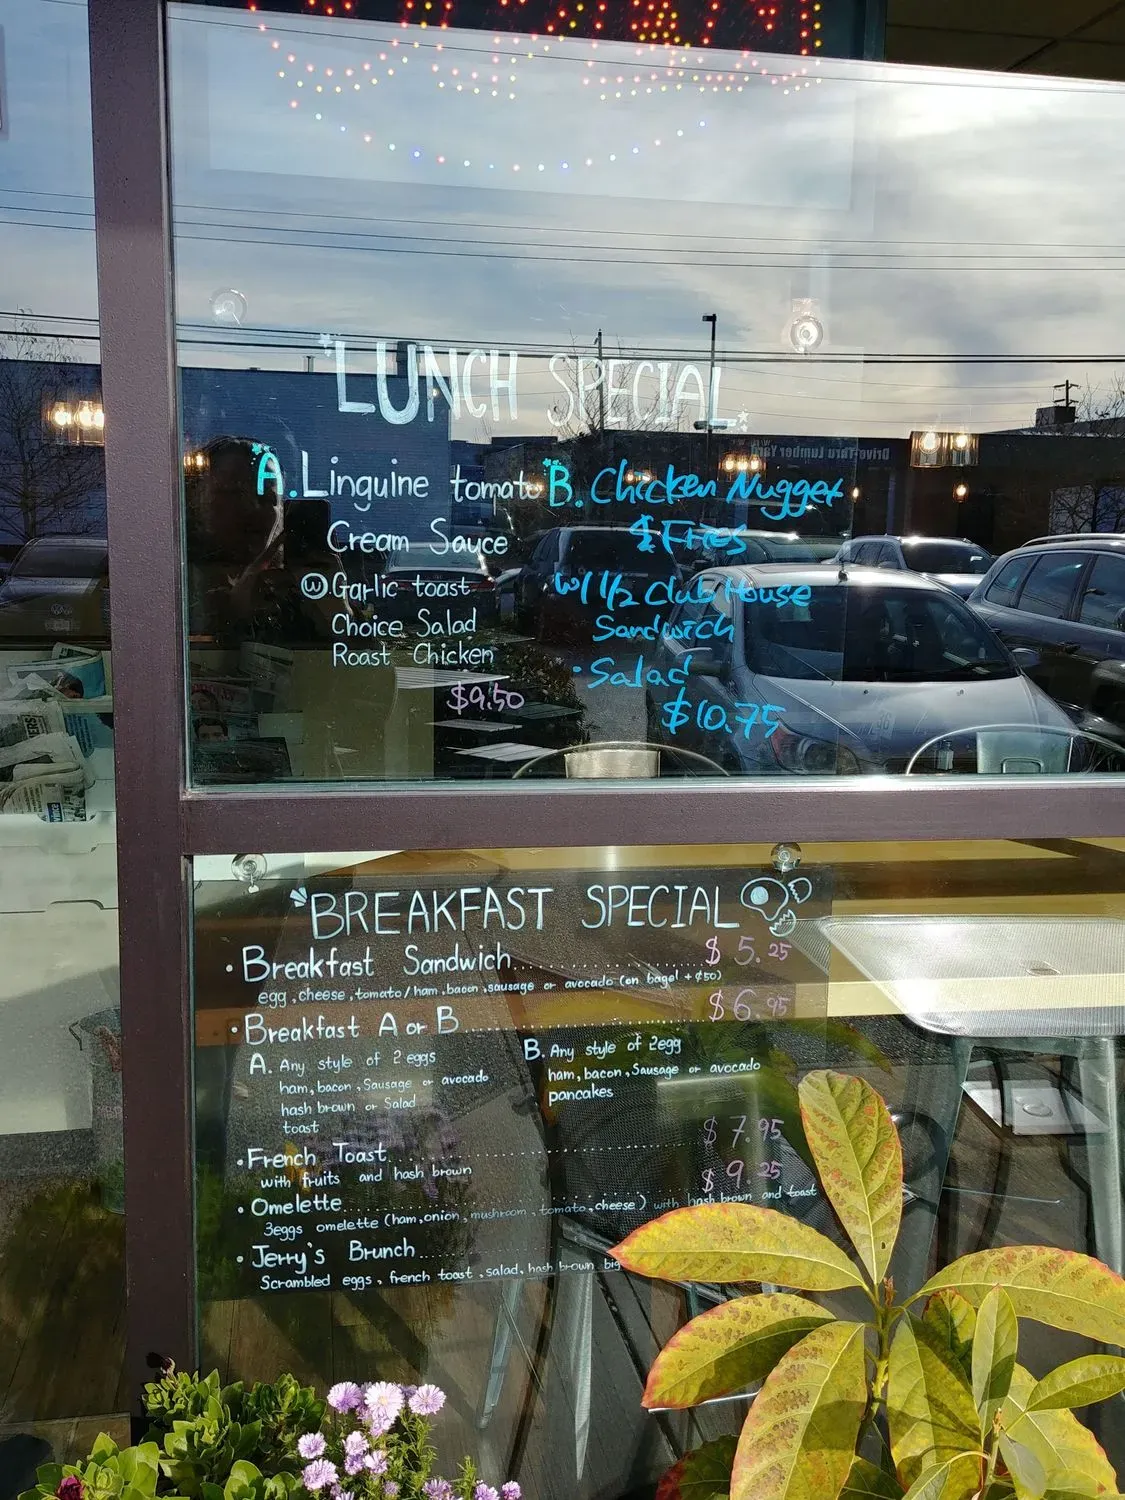 LUNCH SPECIAL
A. Linguine tomato
Cream Sauce
w. Garlic toast
Choice Salad
Roast Chicken
$9.50
B. Chicken Nugget
& Fries
w/ 1/2 Club House
Sandwich
· Salad
$10.75
Drive-Thru Lumber Yard
BREAKFAST SPECIAL
· Breakfast Sandwich.............. $5.25
egg, cheese, tomato/ham, bacon, sausage or avocado (on bagel + $50)
· Breakfast A or B.............. $6.95
A. Any style of 2 eggs
ham, bacon, Sausage or avocado
hash brown or Salad
toast
B. Any style of 2egg
ham, bacon, Sausage or avocado
pancakes
· French Toast.............. $7.95
with fruits and hash brown
· Omelette.............. $9.25
3eggs omelette (ham, onion, mushroom, tomato, cheese) with hash brown and toast
· Jerry's Brunch..............
Scrambled eggs, french toast, salad, hash brown big